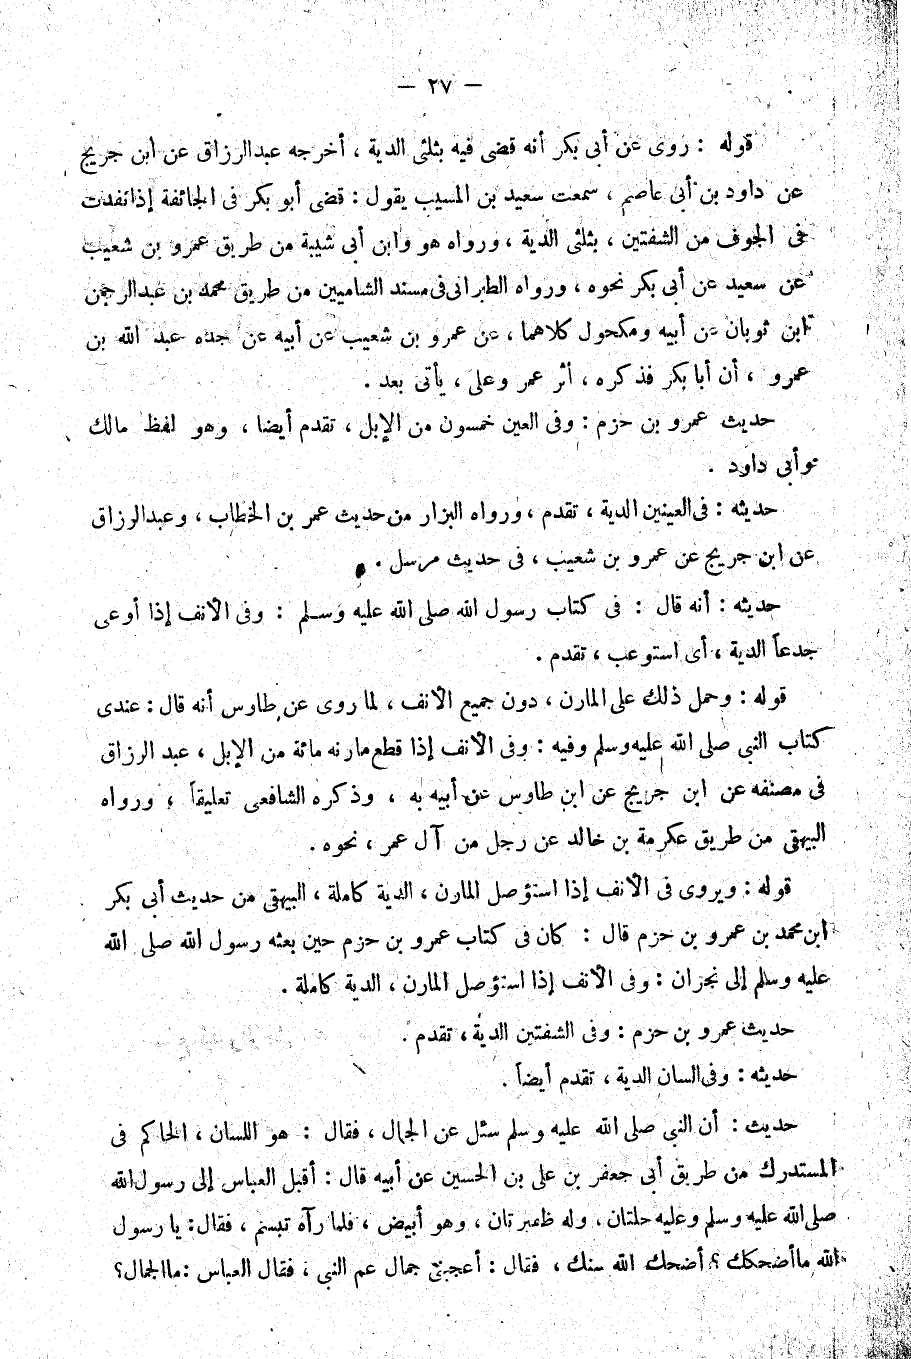 — ٢٧ —
قوله : روى عن أبى بكر أنه قضى فيه بثلثى الدية ، أخرجه عبدالرزاق عن ابن جريج
عن داود بن أبى عاصم ، سمعت سعيد بن المسيب يقول : قضى أبو بكر فى الجائفة إذا نفدت
فى الجوف من الشفتين ، بثلثى الدية ، ورواه هو وابن أبى شيبة من طريق عمرو بن شعيب
عن سعيد عن أبى بكر نحوه ، ورواه الطبرانى فى مسند الشاميين من طريق محمد بن عبدالرحمن
ابن ثوبان عن أبيه ومكحول كلاهما ، عن عمرو بن شعيب عن أبيه عن جده عبد الله بن
عمرو ، أن أبا بكر فذكره ، أثر عمر وعلى ، يأتى بعد .
حديث عمرو بن حزم : وفى العين خمسون من الإبل ، تقدم أيضا ، وهو لفظ مالك
وأبى داود .
حديثه : فى العينين الدية ، تقدم ، ورواه البزار من حديث عمر بن الخطاب ، وعبدالرزاق
عن ابن جريج عن عمرو بن شعيب ، فى حديث مرسل .
حديثه : أنه قال : فى كتاب رسول الله صلى الله عليه وسلم : وفى الأنف إذا أوعى
جدعاً الدية ، أى استوعب ، تقدم .
قوله : وحمل ذلك على المارن ، دون جميع الأنف ، لما روى عن طاوس أنه قال : عندى
كتاب النبى صلى الله عليه وسلم وفيه : وفى الأنف إذا قطع مارنه مائة من الإبل ، عبد الرزاق
فى مصنفه عن ابن جريج عن ابن طاوس عن أبيه به ، وذكره الشافعى تعليقاً ، ورواه
البيهقى من طريق عكرمة بن خالد عن رجل من آل عمر ، نحوه .
قوله : ويروى فى الأنف إذا استؤصل المارن ، الدية كاملة ، البيهقى من حديث أبى بكر
ابن محمد بن عمرو بن حزم قال : كان فى كتاب عمرو بن حزم حين بعثه رسول الله صلى الله
عليه وسلم إلى نجران : وفى الأنف إذا استؤصل المارن ، الدية كاملة .
حديث عمرو بن حزم : وفى الشفتين الدية ، تقدم .
حديثه : وفى السان الدية ، تقدم أيضاً .
حديث : أن النبى صلى الله عليه وسلم سئل عن الجمال ، فقال : هو اللسان ، الحاكم فى
المستدرك من طريق أبى جعفر بن على بن الحسين عن أبيه قال : أقبل العباس إلى رسول الله
صلى الله عليه وسلم وعليه حلتان ، وله ظفيرتان ، وهو أبيض ، فلما رآه تبسم ، فقال : يا رسول
الله ما أضحكك ؟ أضحك الله سنك ، فقال : أعجبنى جمال عم النبى ، فقال العباس : ما الجمال؟